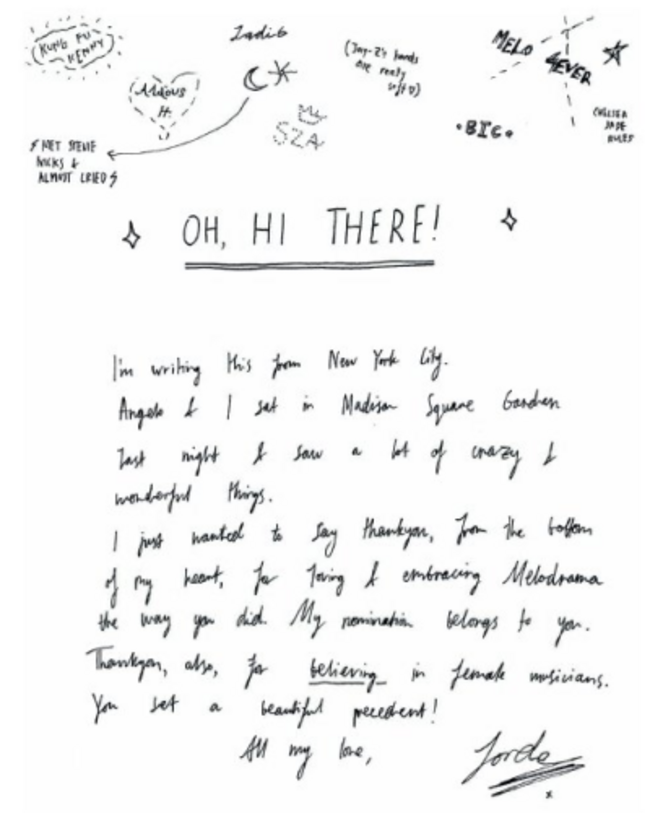 KUNG FU
KENNY
Zadie
(Jay-Z's hands
are really
soft)
MELO
4EVER
Aldous
H.
SZA
BIG
CHELSEA
JADE
RULES
MET STEVIE
NICKS &
ALMOST CRIED
OH, HI THERE!
I'm writing this from New York City.
Angelo & I sat in Madison Square Garden
last night & saw a lot of crazy &
wonderful things.
I just wanted to say thankyou, from the bottom
of my heart, for loving & embracing Melodrama
the way you did. My nomination belongs to you.
Thankyou, also, for believing in female musicians.
You set a beautiful precedent!
All my love,
Lorde
x